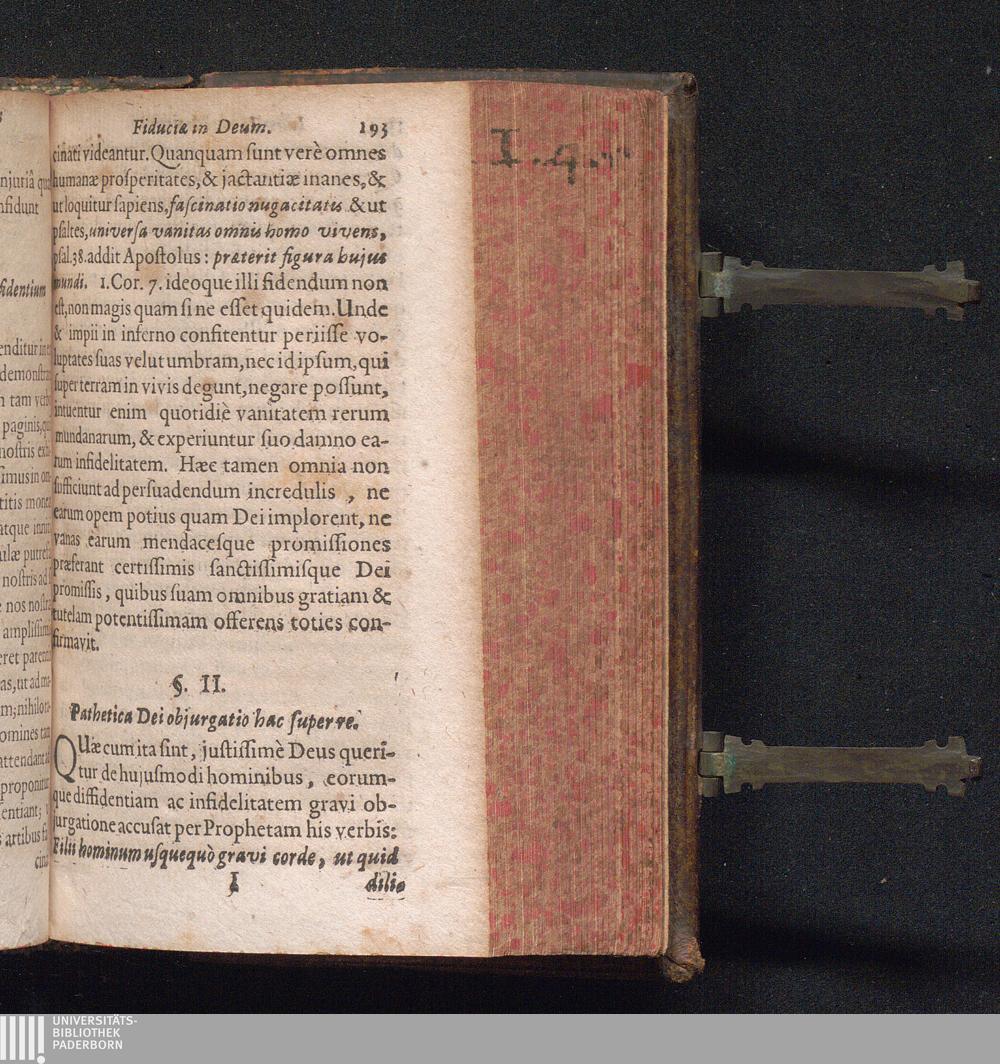 Fiduciæ in Deum. 193
cinati videantur. Quanquam sunt verè omnes
humanæ prosperitates, & jactantiæ inanes, &
ut loquitur sapiens, fascinatio nugacitatis & ut
psaltes, universa vanitas omnis homo vivens,
psal. 38. addit Apostolus : præterit figura hujus
mundi. 1. Cor. 7. ideoque illi fidendum non
est, non magis quam si ne esset quidem. Unde
& impii in inferno confitentur periisse vo-
luptates suas velut umbram, nec id ipsum, qui
super terram in vivis degunt, negare possunt,
intuentur enim quotidiè vanitatem rerum
mundanarum, & experiuntur suo damno ea-
rum infidelitatem. Hæc tamen omnia non
sufficiunt ad persuadendum incredulis , ne
earum opem potius quam Dei implorent, ne
vanas earum mendacesque promissiones
præferant certissimis sanctissimisque Dei
promissis , quibus suam omnibus gratiam &
tutelam potentissimam offerens toties con-
firmavit.
§. II.
Pathetica Dei objurgatio hac super re.
QUæ cum ita sint, justissimè Deus queri-
tur de hujusmodi hominibus , eorum-
que diffidentiam ac infidelitatem gravi ob-
jurgatione accusat per Prophetam his verbis:
Filii hominum usquequò gravi corde, ut quid
I dili-
njuriâ
nfidunt
fidentium
enditur
demonstra
tam
paginis,
nostris
simus in
titis
atque
nostris ad
nos
amplissim
eret
as, ut ad
m; nihilon-
omines
attendant
entiant;
artibus
cina
UNIVERSITÄTS-
BIBLIOTHEK
PADERBORN